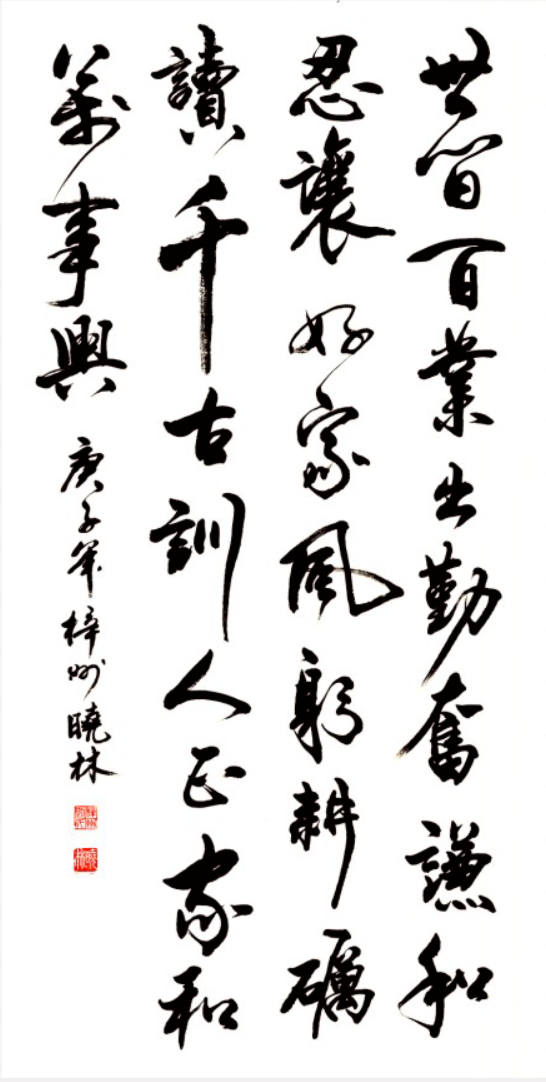 世間百業出勤奮謙和
忍讓好家風躬耕礪
讀千古訓人正家和
萬事興 庚子年梓州曉林